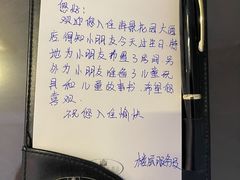 您好:
欢迎您入住海景花园大酒
店,得知小朋友今天过生日,特
地为小朋友布置了房间,另
外为小朋友准备了儿童玩
具和儿童故事书,希望您
喜欢.
祝您入住愉快
服务员